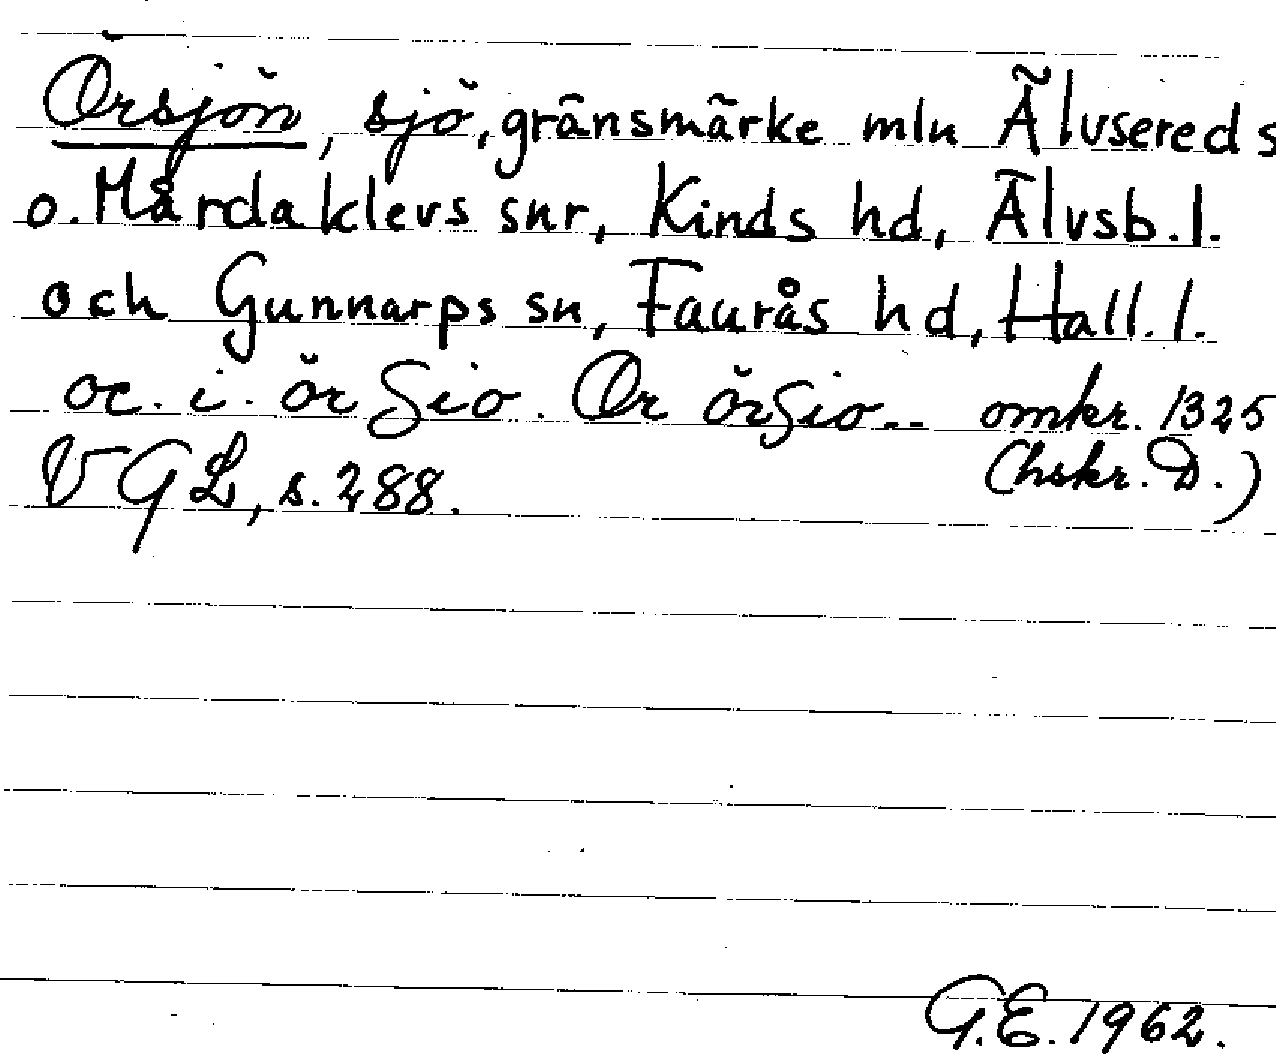 Örsjön, sjö, gränsmärke mln Älvsereds
o. Mårdaklevs snr, Kinds hd, Älvsb. l.
och Gunnarps sn, Faurås hd, Hall. l.
oc. i. ör Sio. Or örSio-- omkr. 1325
VGL, s. 288. (hskr. D.)
G.E. 1962.